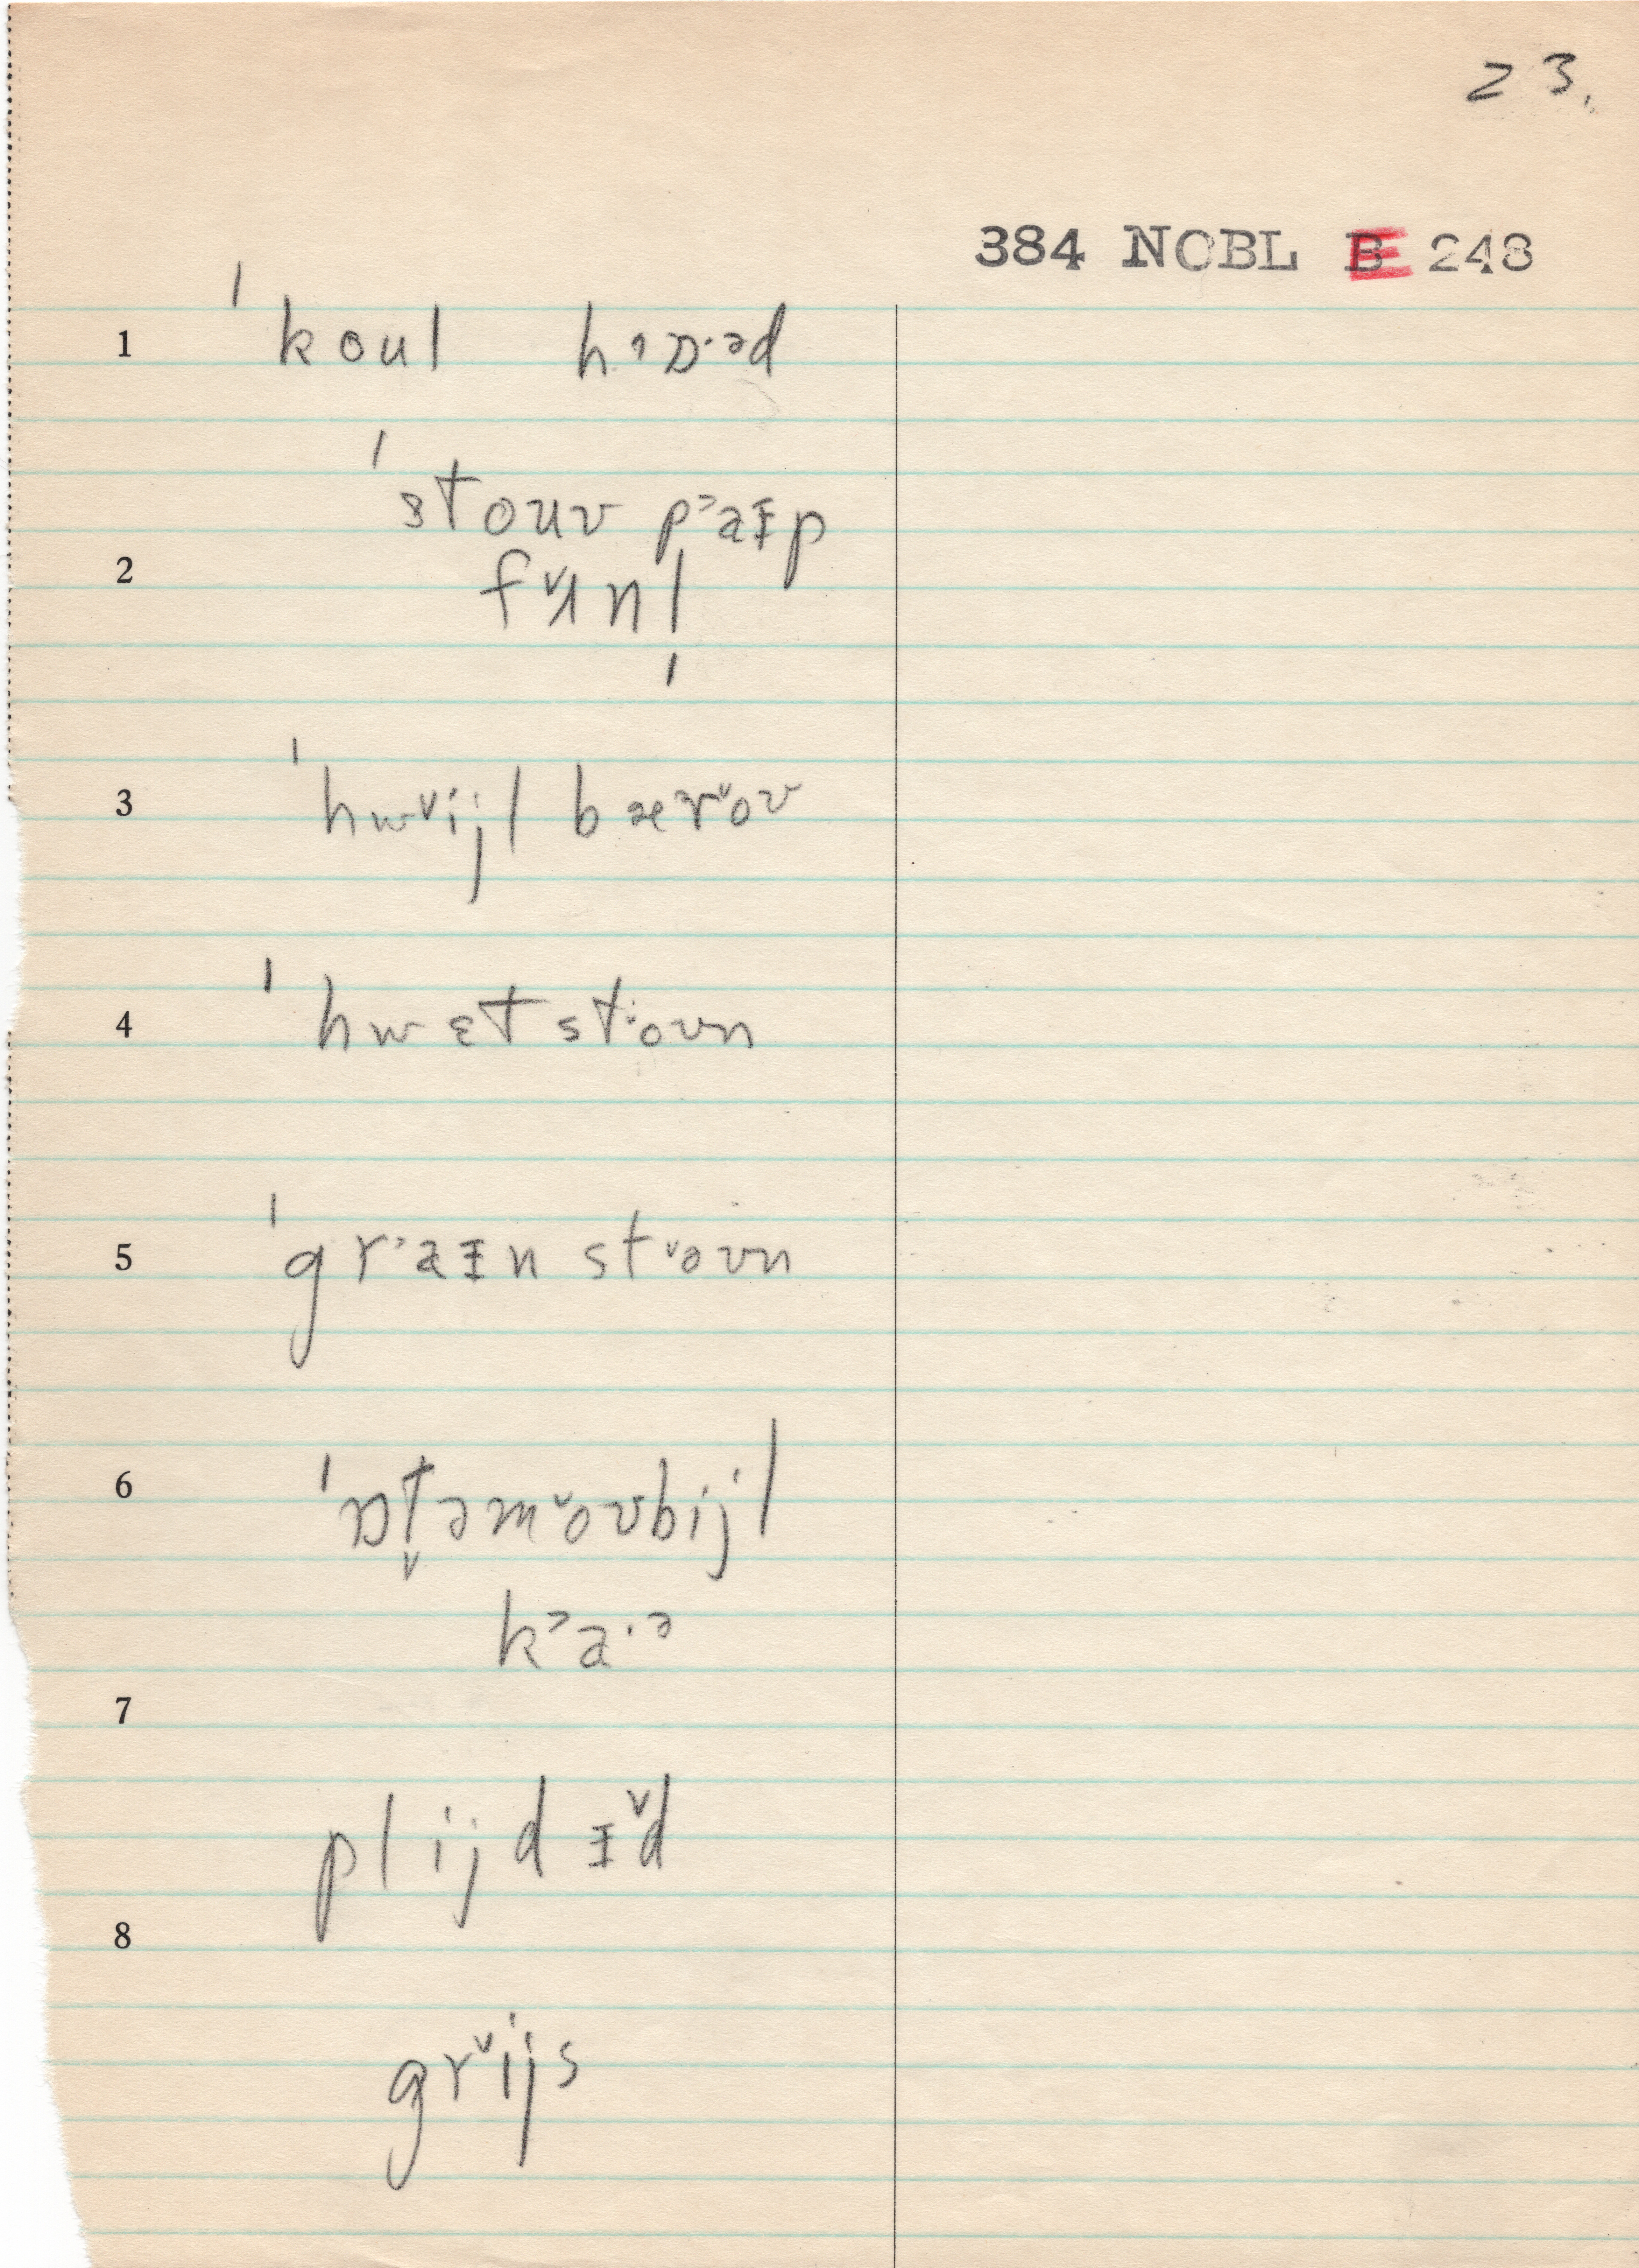 23.
384 NOBL E 248
1 ˈkoul h˒ɒ·əd
ˈstouv p˃aɪp
2 fʌ̌nl
3 ˈhw˅ijl bær˅oʊ
4 ˈhwɛt st·oʊn
5 ˈgr˃aɪn st˅oʊn
6 ˈɒt̬əm˅oʊbijl
k˃a·ə
7
plijdɪ̌d
8
gr˅ijs